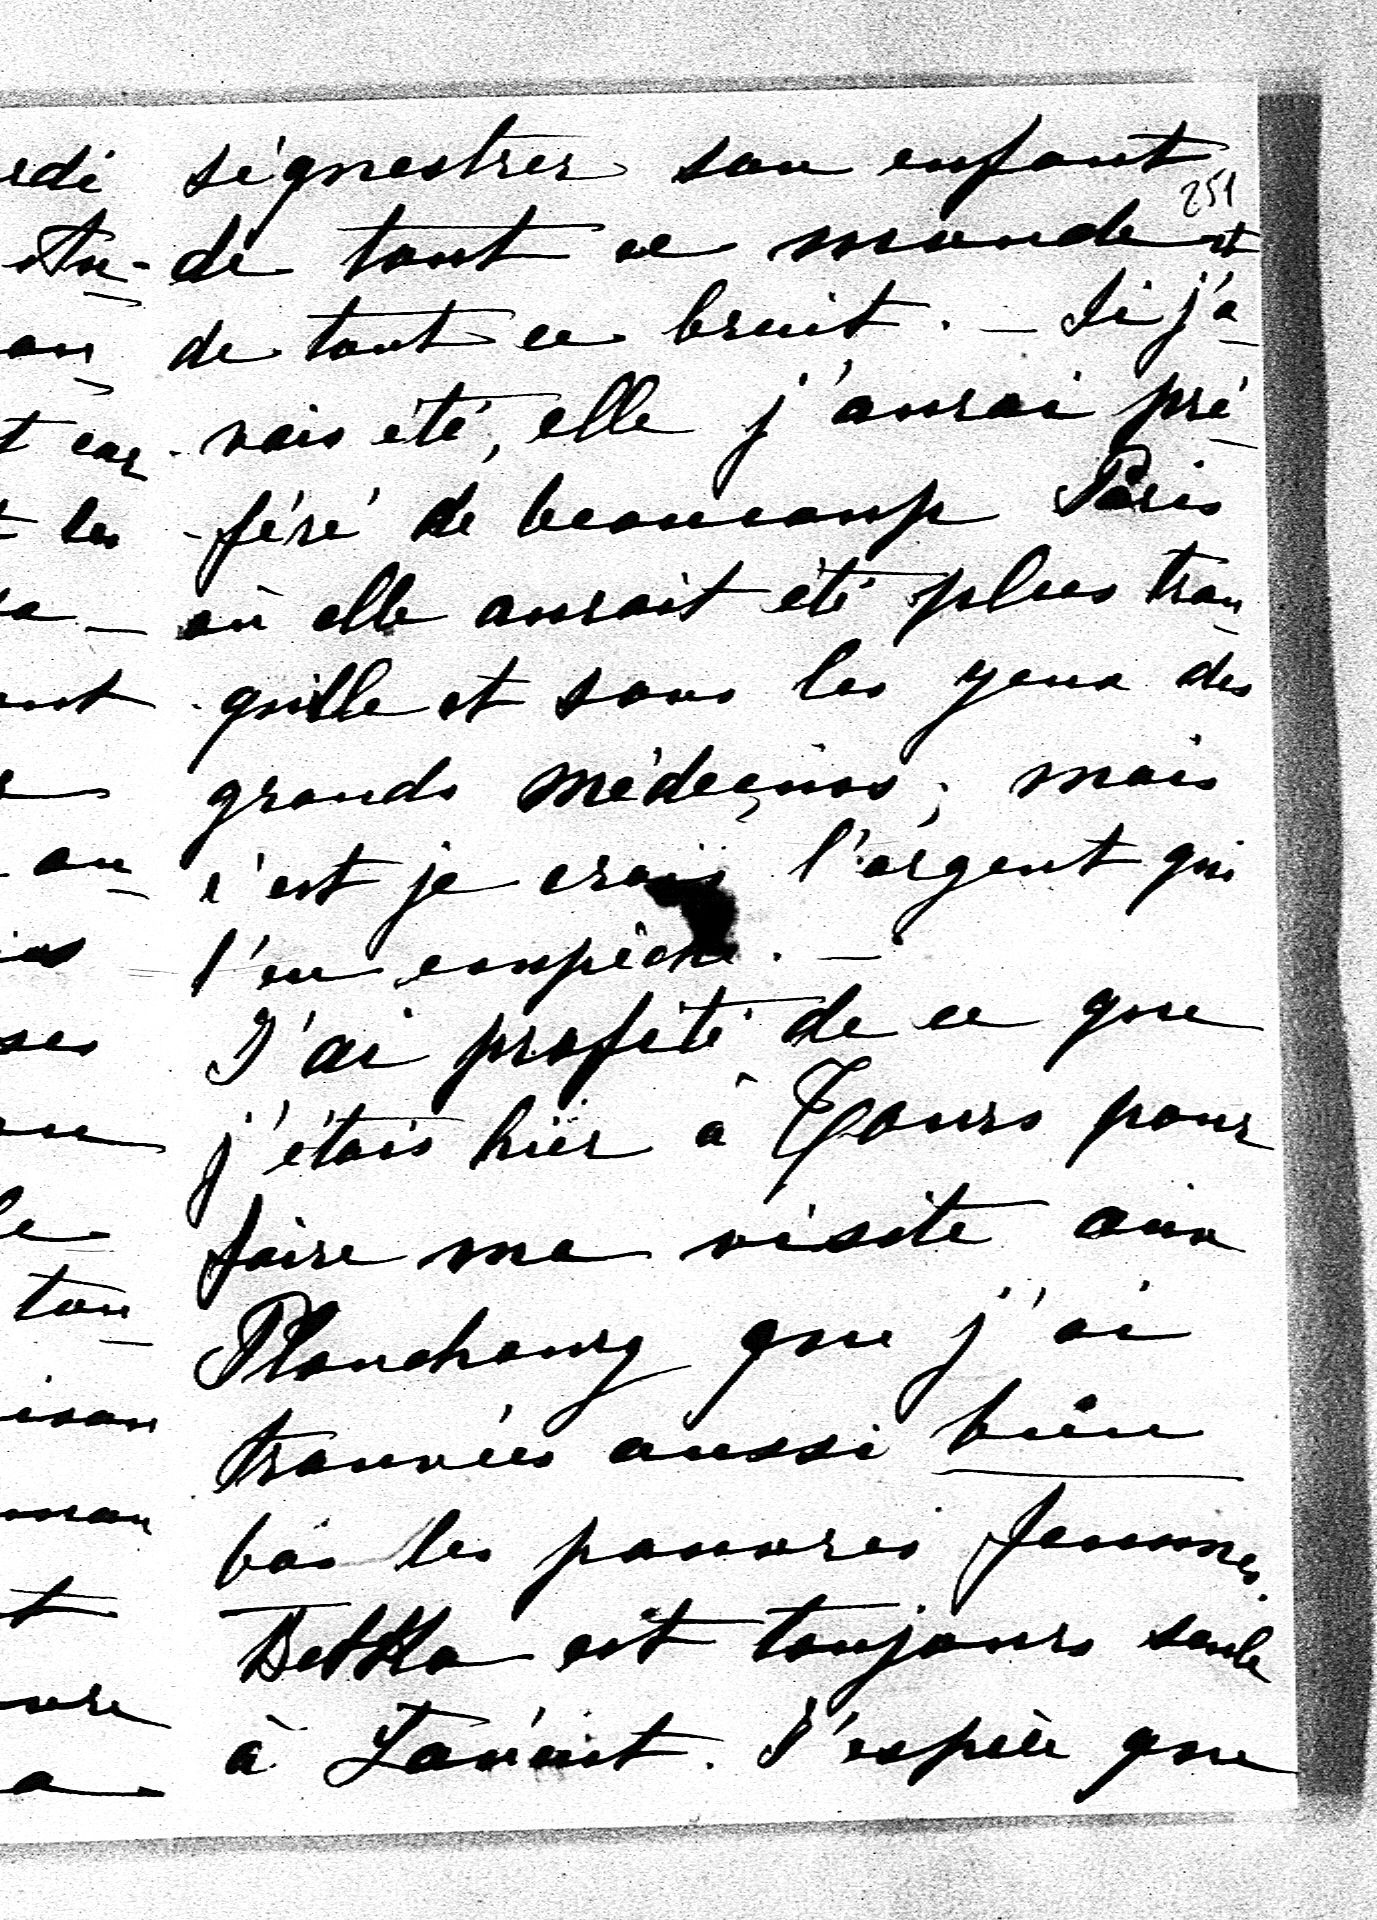 séquestrer son enfant
251
de tout ce monde et
de tout ce bruit. — Si j'a
vais été, elle j'aurai pré
féré de beaucoup Paris
où elle aurait été plus tran
quille et sous les yeux des
grands médecins; mais
c'est je crois l'argent qui
l'en empêche. —
J'ai profité de ce que
j'étais hier à Tours pour
faire ma visite aux
Planchoury que j'ai
trouvées aussi bien
bas les pauvres femmes.
est toujours seule
à. J'espère que